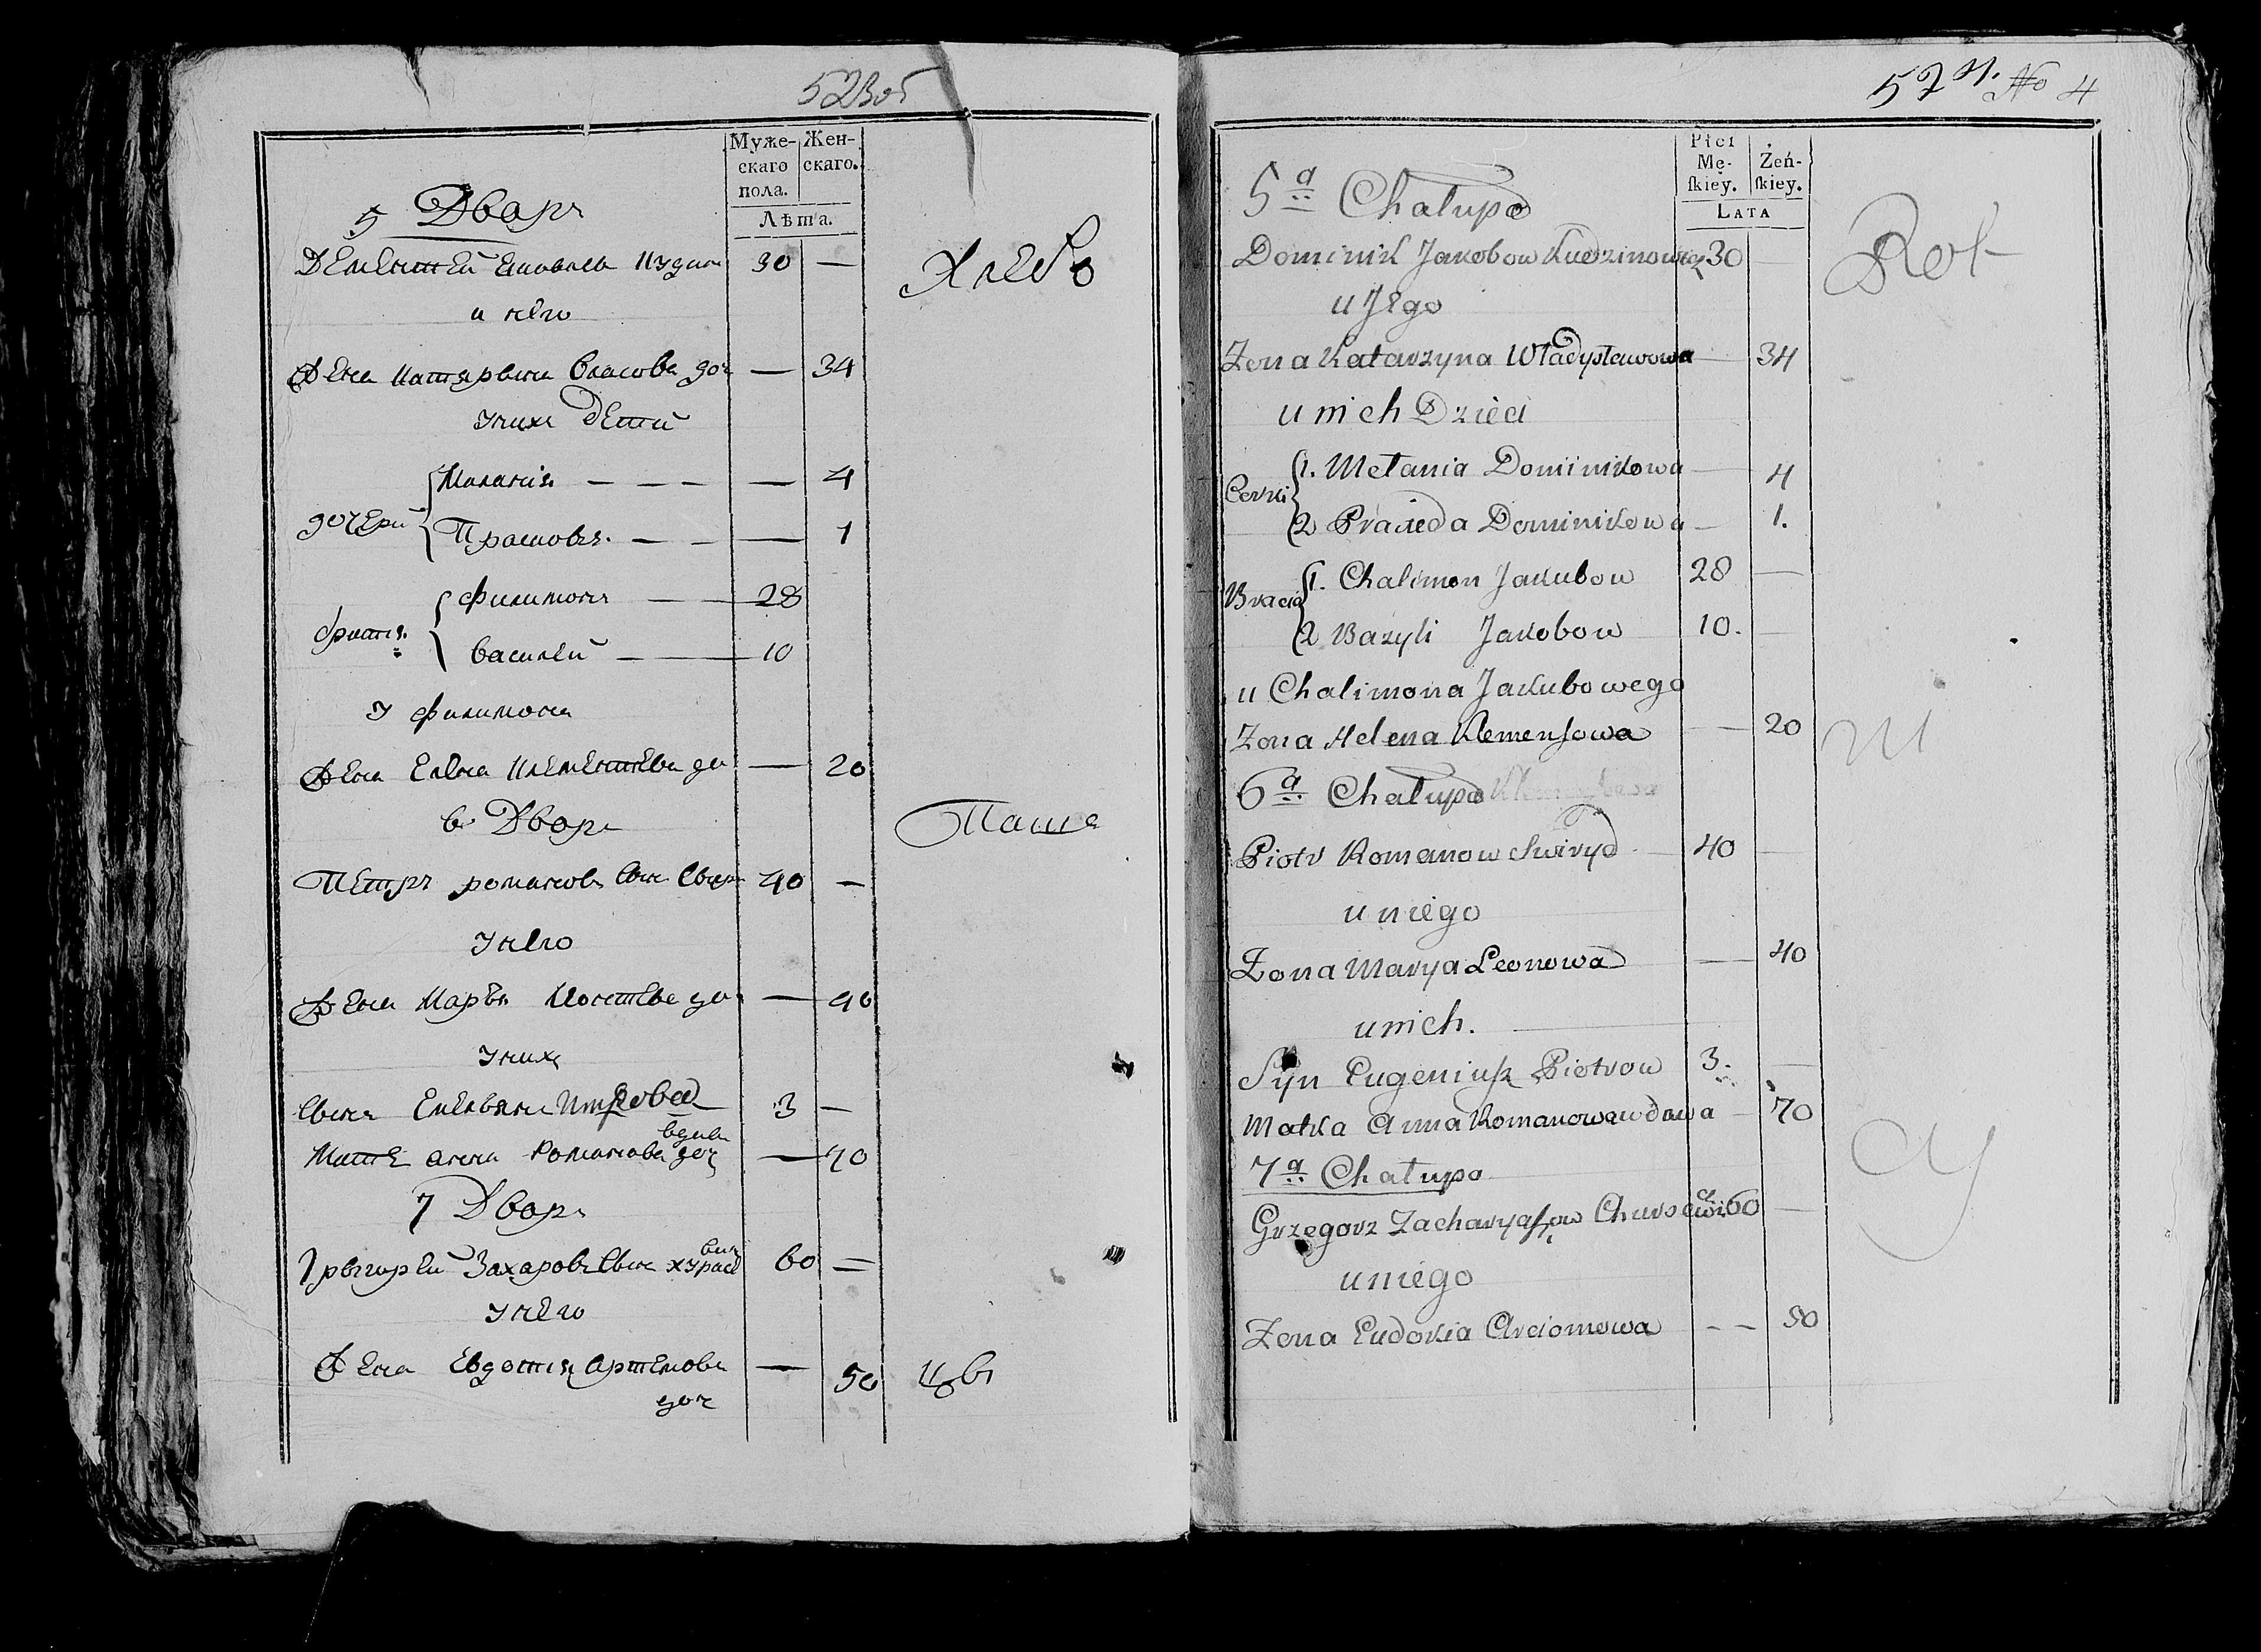 52об
Муже-
скаго
пола.
Жен-
скаго.
Лѣта.
5 Дворъ
30 —
Хлебо
и него
Жена Катарына Власова доч — 34
у них дети
дочери
Маланія — — — — 4
Прасковя. — — — 1
братя
Филимонъ — 28
Василей — 10
У Филимона
Жена Елена Клементева до — 20
6 Дворъ
Паше
Петръ романовъ Свн 40 —
у него
Жена Маря до — 40
у них
3 —
вдова
Мате анна Романова доч — 70
7 Дворъ
вич
Грыгорей Захаровъ Свн хурсе 60 —
у него
Жена Евдотия Артемова — 50
доч
57 № 4
Płci
Mę-
ſkiey.
Żeń-
ſkiey.
LATA
5a Chałupa
Dominik Jakobow Kudzinowicz 30 —
Rol
u Jego
Zona Katarzyna Władysławowa — 34
u nich Dzieci
Corki
1. Mełania Dominikowa — 4
2 Praxeda Dominikowa — 1.
Bracia
1. Chalimon Jakubow 28 —
2 Bazyli Jakobow 10. —
u Chalimona Jakubowego
Zona Helena Klemenſowa — 20
ni
6a Chałupa
Piotr Romanow Swiryd — 40 —
u niego
Zona Marya Leonowa — 40
u nich.
Syn Eugeniuſz Piotrow 3. —
Matka Anna Romanowa wdowa — 70
cy
7a Chałupa
Grzegorz Zacharyaſzow 60 —
u niego
Zona Eudokia Arciomowa — — 50